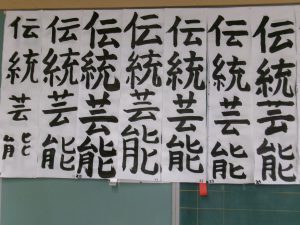 伝統芸能
伝統芸能
伝統芸能
伝統芸能
伝統芸能
伝統芸能
伝統芸能